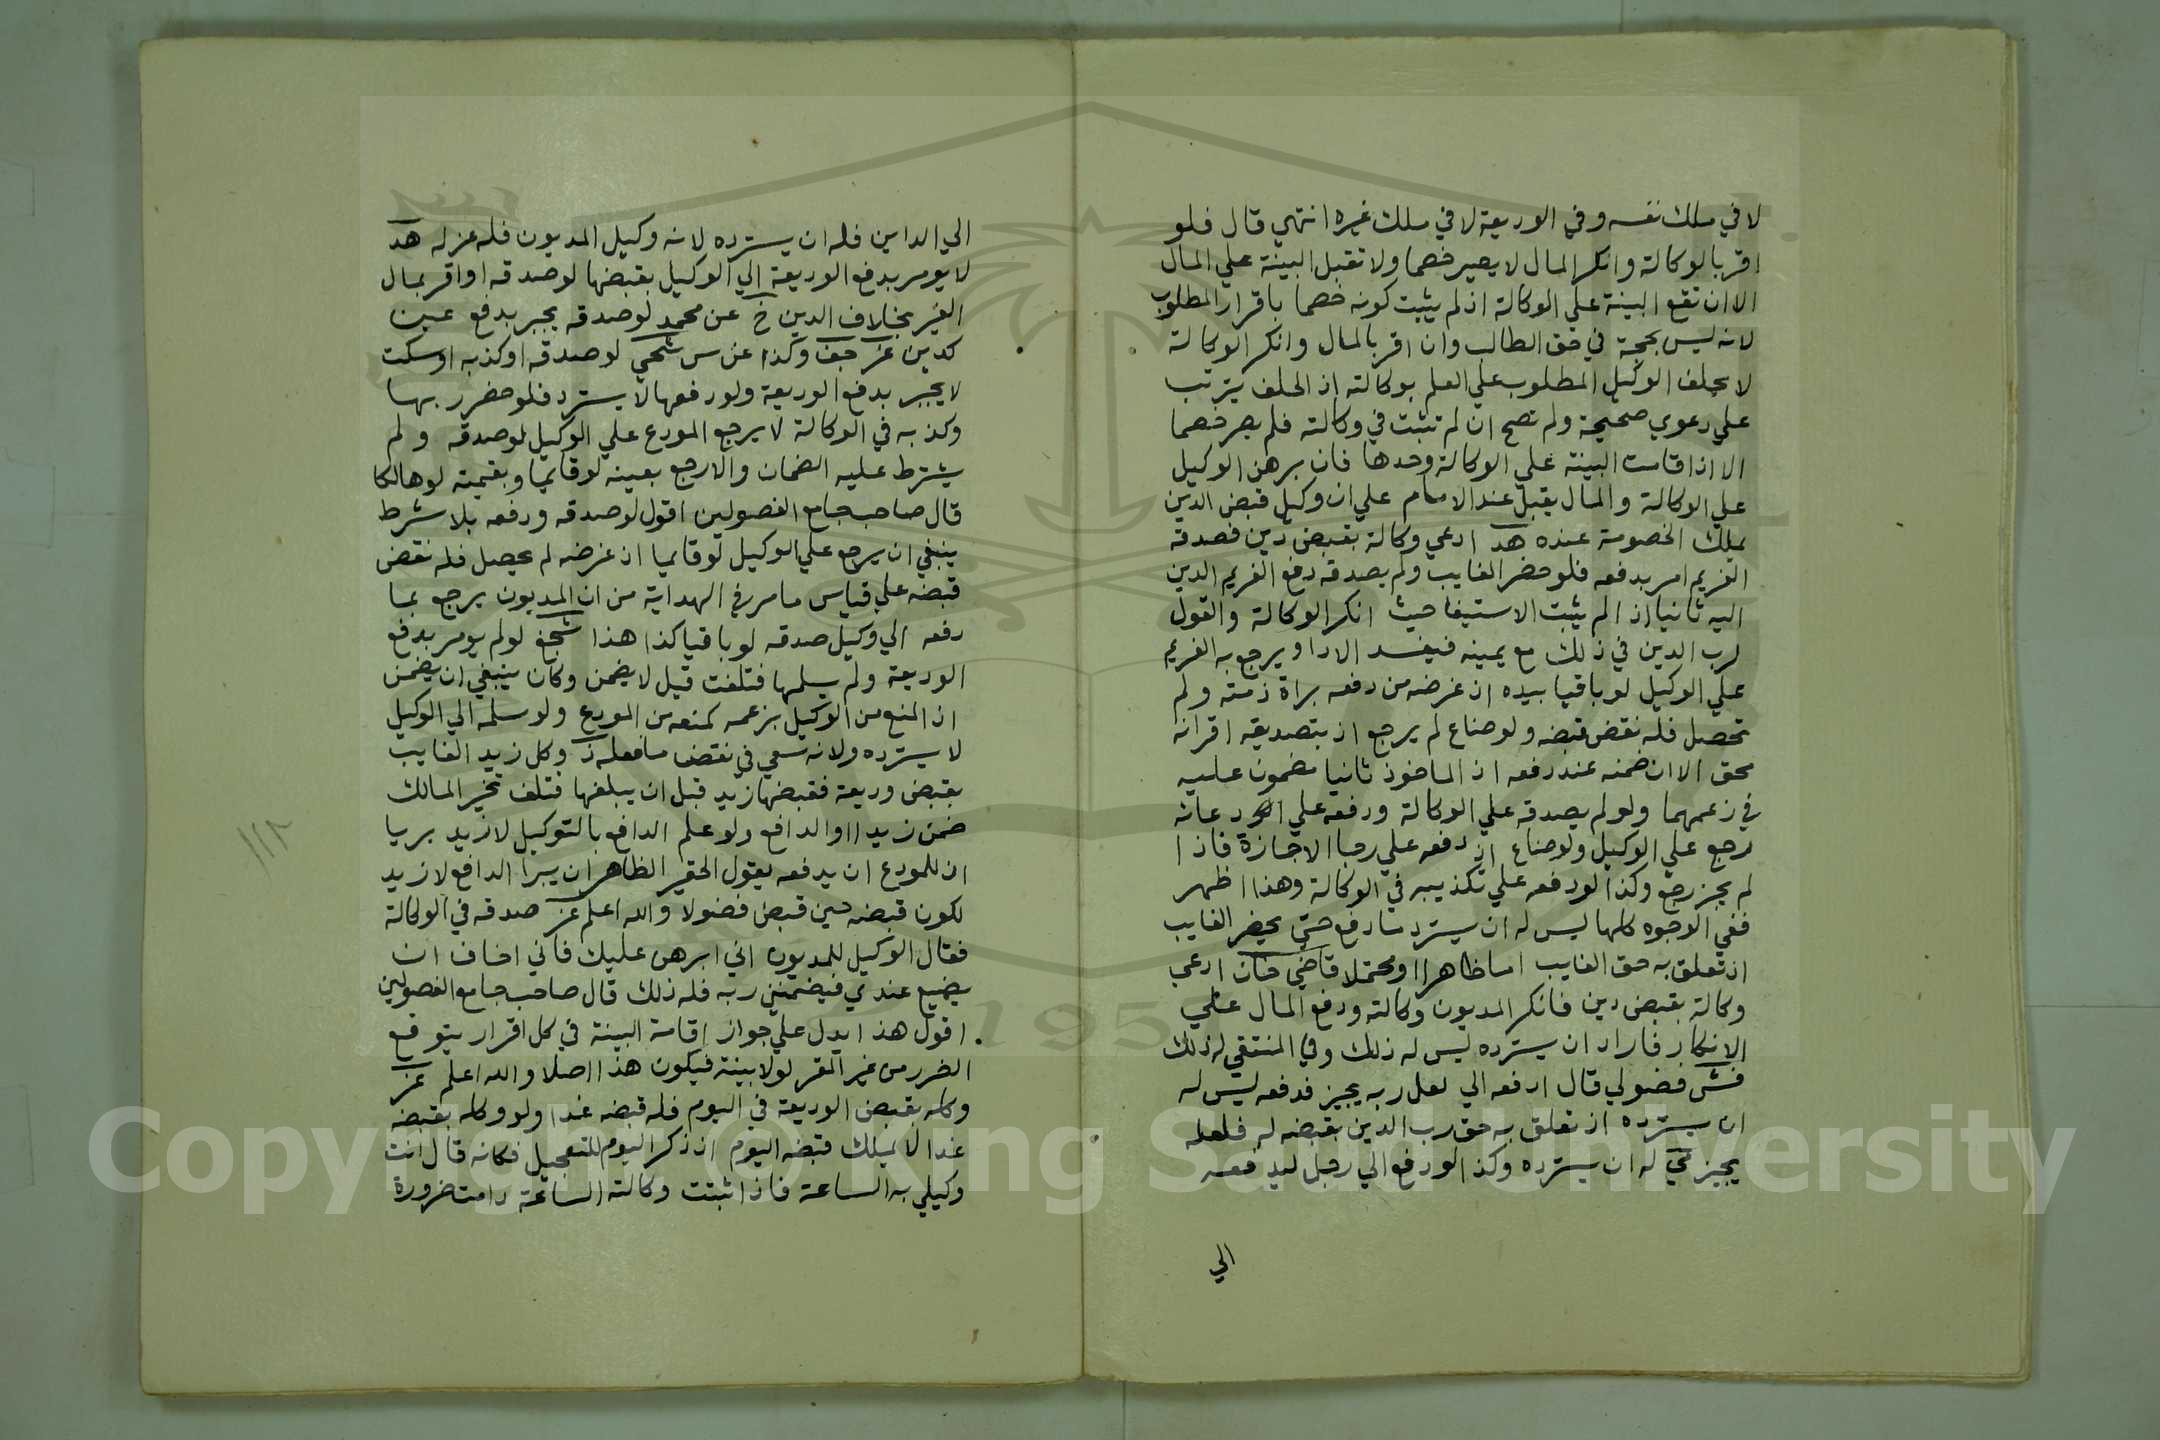 لا في ملك نفسه وفي الوديعة لا في ملك غيره انتهي قال فلو
اقر بالوكالة وانكر المال لا يصير خصما ولا تقبل البينة علي المال
الا ان تقع البينة علي الوكالة اذ لم يثبت كونه خصما باقرار المطلوب
لانه ليس بحجة في حق الطالب وان اقر بالمال وانكر الوكالة
لا يحلف الوكيل المطلوب علي العلم بوكالته اذ الحلف يترتب
علي دعوي صحيحة ولم تصح ان لم تثبت في وكالته فلم يصر خصما
الا اذا قامت البينة علي الوكالة وحدها فان برهن الوكيل
علي الوكالة والمال يقبل عند الامام علي ان وكيل قبض الدين
يملك الخصومة عنده هد ادعي وكالة بقبض دين فصدقه
الغريم امر بدفعه فلو حضر الغايب ولم يصدقه دفع الغريم الدين
اليه ثانيا اذ الم يثبت الاستيفا حيث انكر الوكالة والقول
لرب الدين في ذلك مع يمينه فيفسد الادا ويرجع به الغريم
علي الوكيل لو باقيا بيده اذ غرضه من دفعه براة ذمته ولم
تحصل فله نقض قبضه ولو ضاع لم يرجع اذ بتصديقه اقر انه
محق الا ان ضمنه عند دفعه اذ الماخوذ ثانيا مضمون عليه
في زعمهما ولو لم يصدقه علي الوكالة ودفعه علي ادعائه
رجع علي الوكيل ولو ضاع اذ دفعه علي رجا الاجازة فاذا
لم يجز رجع وكذا لو دفعه علي تكذيبه في الوكالة وهذا اظهر
ففي الوجوه كلها ليس له ان يسترد ما دفع حتي يحضر الغايب
اذ تعلق به حق الغايب اما ظاهرا او محتملا قاضي خان ادعي
وكالة بقبض دين فانكر المديون وكالته ودفع المال علي
الانكار فاراد ان يسترده ليس له ذلك وفي المنتقي له ذلك
فش فضولي قال ادفعه الي لعل ربه يجيز فدفعه ليس له
ان يسترده اذ تعلق به حق رب الدين بقبضه له فلعله
يجيز له ان يسترده وكذا لو دفع الي رجل ليدفعه
الي
الي الداين فله ان يسترده لانه وكيل المديون فله عزله هد
لا يومر بدفع الوديعة الي الوكيل بقبضها لو صدقه او اقر بمال
الغير بخلاف الدين خ عن محمد لو صدقه يجبر بدفع عين
كدين عز جف وكذا عن س شحي لو صدقه او كذبه او سكت
لا يجبر بدفع الوديعة ولو دفعها لا يسترد فلو حضر ربها
وكذبه في الوكالة لا يرجع المودع علي الوكيل لو صدقه ولم
يشترط عليه الضمان والا رجع بعينه لو قايما وبقيمته لو هالكا
قال صاحب جامع الفصولين اقول لو صدقه ودفعه بلا شرط
ينبغي ان يرجع علي الوكيل لو قايما اذ غرضه لم يحصل فله نقض
قبضه علي قياس ما مر في الهداية من ان المديون يرجع بما
دفعه الي وكيل صدقه لو باقيا كذا هذا شجغ لو لم يومر بدفع
الوديعة ولم يسلمها فتلفت قيل لا يضمن وكان ينبغي ان يضمن
اذ المنع من الوكيل بزعمه كمنعه من المودع ولو سلمه الي الوكيل
لا يسترده ولانه سعي في نقض ما فعله ذ وكل زيد الغايب
بقبض وديعة فقبضها زيد قبل ان يبلغها فتلف تخير المالك
ضمن زيدا او الدافع ولو علم الدافع بالتوكيل لا زيد بريا
اذ للمودع ان يدفعه يقول الحقير الظاهر ان يبرا الدافع لا زيد
لكون قبضه حين قبض فضولا والله اعلم عز صدقه في الوكالة
فقال الوكيل للمديون اني ابرهن عليك فاني اخاف ان
يضيع عندي فيضمنني ربه فله ذلك قال صاحب جامع الفصولين
اقول هذا يدل علي جواز اقامة البينة في كل اقرار يتوقع
الضرر من غير المقر لولا بينة فيكون هذا اصلا والله اعلم عز
وكله بقبض الوديعة في اليوم فله قبضه غدا ولو وكله بقبضه
غدا لا يملك قبضه اليوم اذ ذكر اليوم للتعجيل فكانه قال انت
وكيلي به الساعة فاذا ثبتت وكالته الساعة دامت ضرورة
١١٢
Copyright © King Saud University
1957